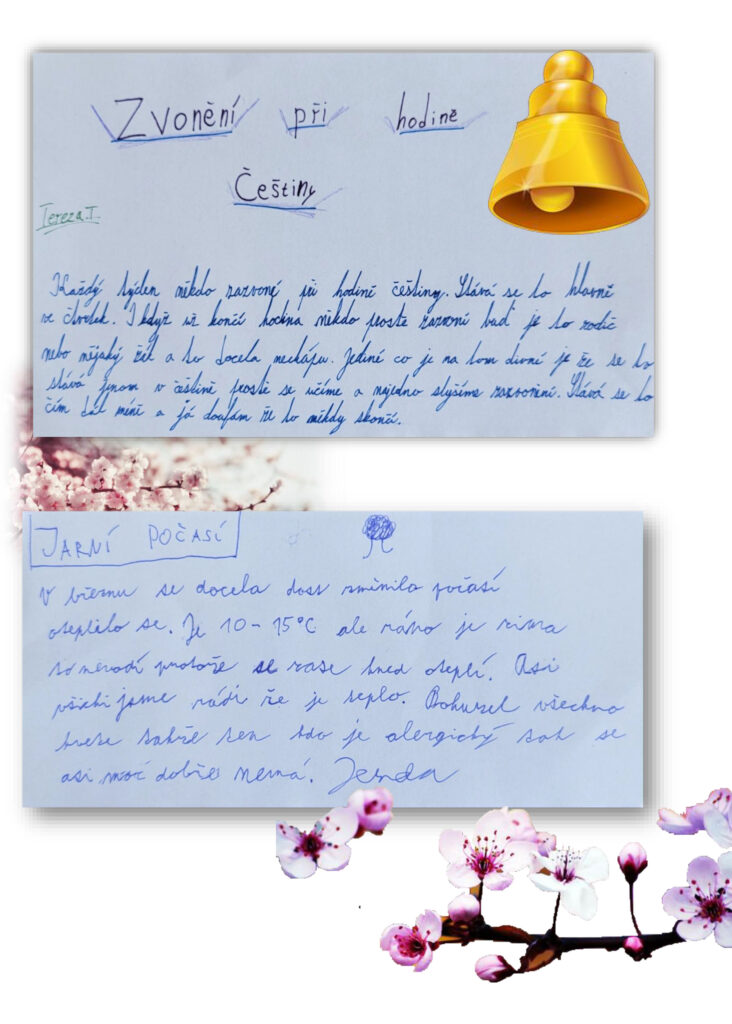 Zvonění při hodině
Češtiny
Tereza T.
Každý týden někdo zazvoní při hodině češtiny. Stává se to hlavně
ve čtvrtek. I když už končí hodina někdo prostě zazvoní buď je to rodič
nebo nějaký žák a to docela nechápu. Jediné co je na tom divní je že se to
stává jenom v češtině prostě se učíme a najednou slyšíme zazvonění. Stává se to
čím dál méně a já doufám že to někdy skončí.
JARNÍ POČASÍ
V březnu se docela dost změnilo počasí
oteplilo se. Je 10-15°C ale ráno je zima
to nevadí protože se zase hned oteplí. Asi
všichi jsme rádi že je teplo. Bohuzel všechno
kvete takže ten kdo je alergický tak se
asi moc dobře nemá. Jenda